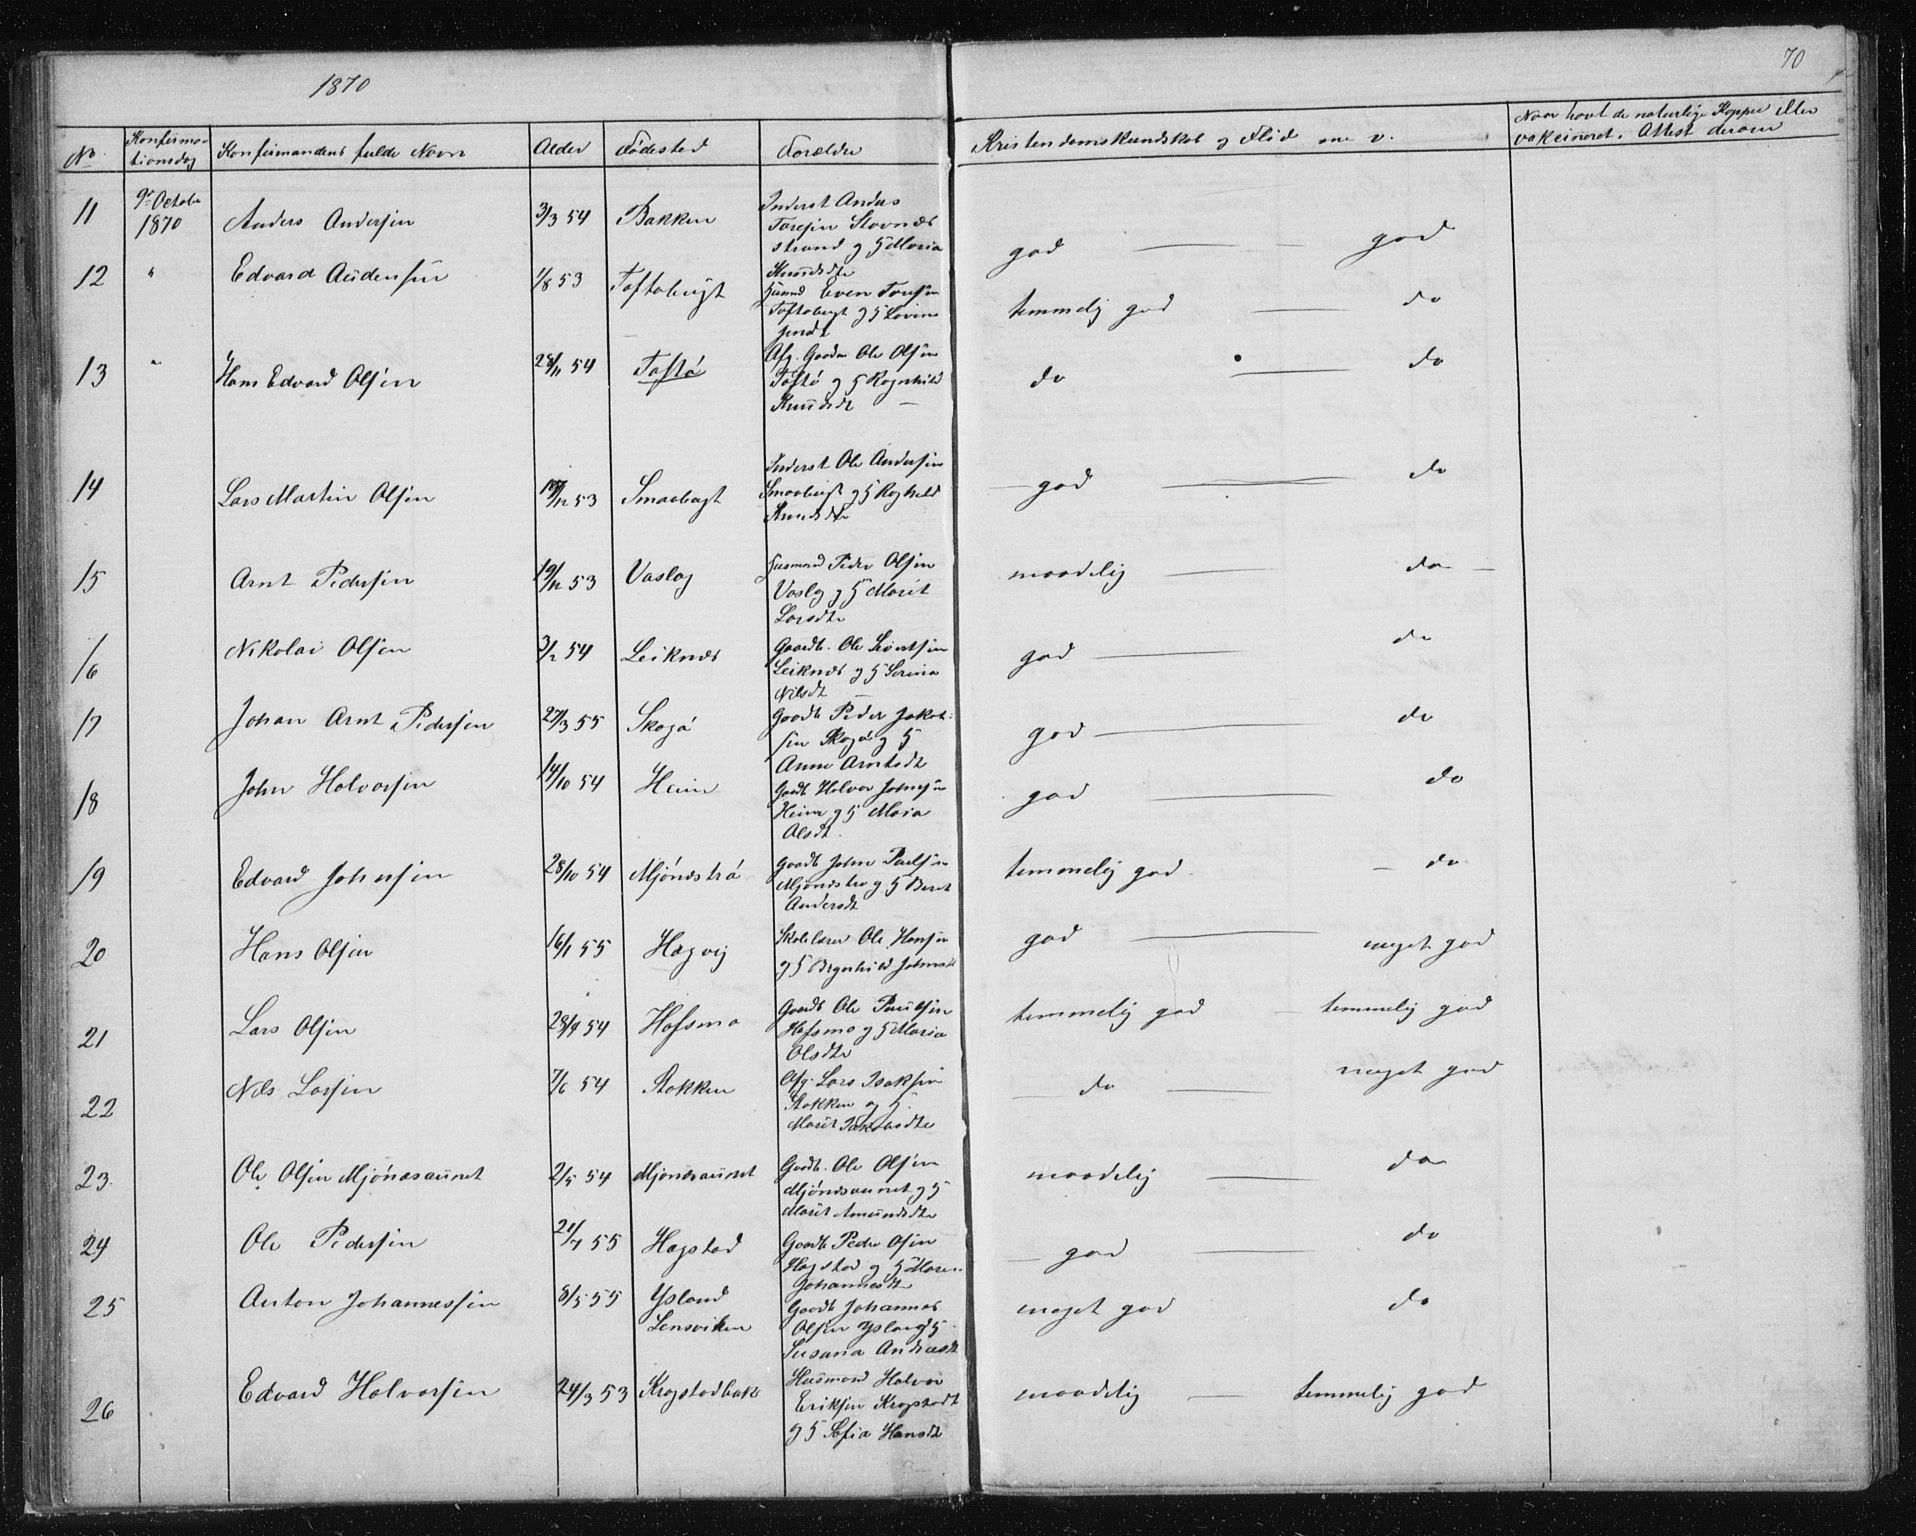 1870
70
No Konfirmationsdag Konfirmandens fulde Navn Alder Fødested Forældre Kristendomskundskab og Flid m. v. Naar havt de naturlige Kopper eller vakcineret. Attest derom
11 9de Octobe 1870 Anders Andersen 3/3 54 Bakken Inderst Anders Toresen Stovnes strand og H Maria Knudsdt god — god
12 " Edvard Audensen 1/8 53 Toftebugt Husmd Even Toresen Toftebugt og H Lovine temmelig god — do
13 " Hans Edvard Olsen 28/11 54 Toftø Afg. Gaardm Ole Olsen Toftø og H Ragnhild Knudsdt — do — do
14 Lars Martin Olsen /12 53 Smaabugt Inderst Ole Andersen Smaabugt og H Raghild Knudsdt god — do
15 Arnt Pedersen 19/12 53 Vaslag Husmand Peder Olsen Vaslag og H Marit Larsdtr maadelig — do —
16 Nikolai Olsen 3/2 54 Leiknes Gaardb. Ole Sivertsen Leiknes og H Serina Nilsdt god — do
17 Johan Arnt Pedersen 27/3 55 Skogø Gaardb Peder Jakobsen Skogø og H Anne Arntsdt god — do
18 John Halvorsen 14/10 54 Heim Gaardb Halvor Johnsen Heim og H Maria Olsdt. god — do
19 Edvard Johnsen 28/10 54 Mjønestrø Gaardb John Paulsen Mjønestrø og H Beret Andersdt temmelig god — do
20 Hans Olsen 16/1 55 Hagvig Skolelærer Ole Hansen og H Ragnhild Johnsdt god — meget god
21 Lars Olsen 28/9 54 Hofsmo Gaardb Ole Paulsen Hofsmo og H Maria Olsdtr temmelig god — temmelig god
22 Nils Larsen 7/6 54 Stokken Afg. Lars Isaksen Stokken og H. Marit Jakobsdtr — do — meget god
23 Ole Olsen Mjønesaunet 2/5 54 Mjønesaunet Gaardb. Ole Olsen Mjønesaunet og H Marit Amundsdtr maadelig — do
24 Ole Pedersen 21/7 55 Hagstad Gaardb Peder Olsen Hagstad og H Maren Johannesdt — god — do
25 Anton Johannessen 8/5 55 Ysland Lensviken Gaardb Johannes Olsen Ysland og H Susana Andreasdt meget god do
26 Edvard Halvorsen 24/3 53 Krogstadbak Husmand Halvor Eriksen Krogstadt og H Sofia Hansdt maadelig — temmelig god